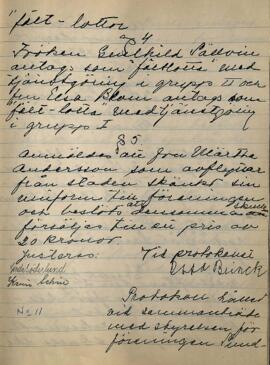 "fält-lottor
§ 4
Fröken Gunhild Pålsson
antogs som "fältlotta" med
tjänstgöring i grupp II och
fru Elsa Blom antogs som
fält-lotta med tjänstgöring
i grupp I
§ 5.
Anmäldes att fru Märtha
Andersson som avflyttar
från staden skänkt sin
uniform till föreningen
och beslöts att densamma skulle
försäljas till en pris av
20 kronor.
Justeras: Vid protokollet
Söderlund Bünck
Protokoll hållet
No 11 vid sammanträde
med styrelsen för
föreningen Sund-